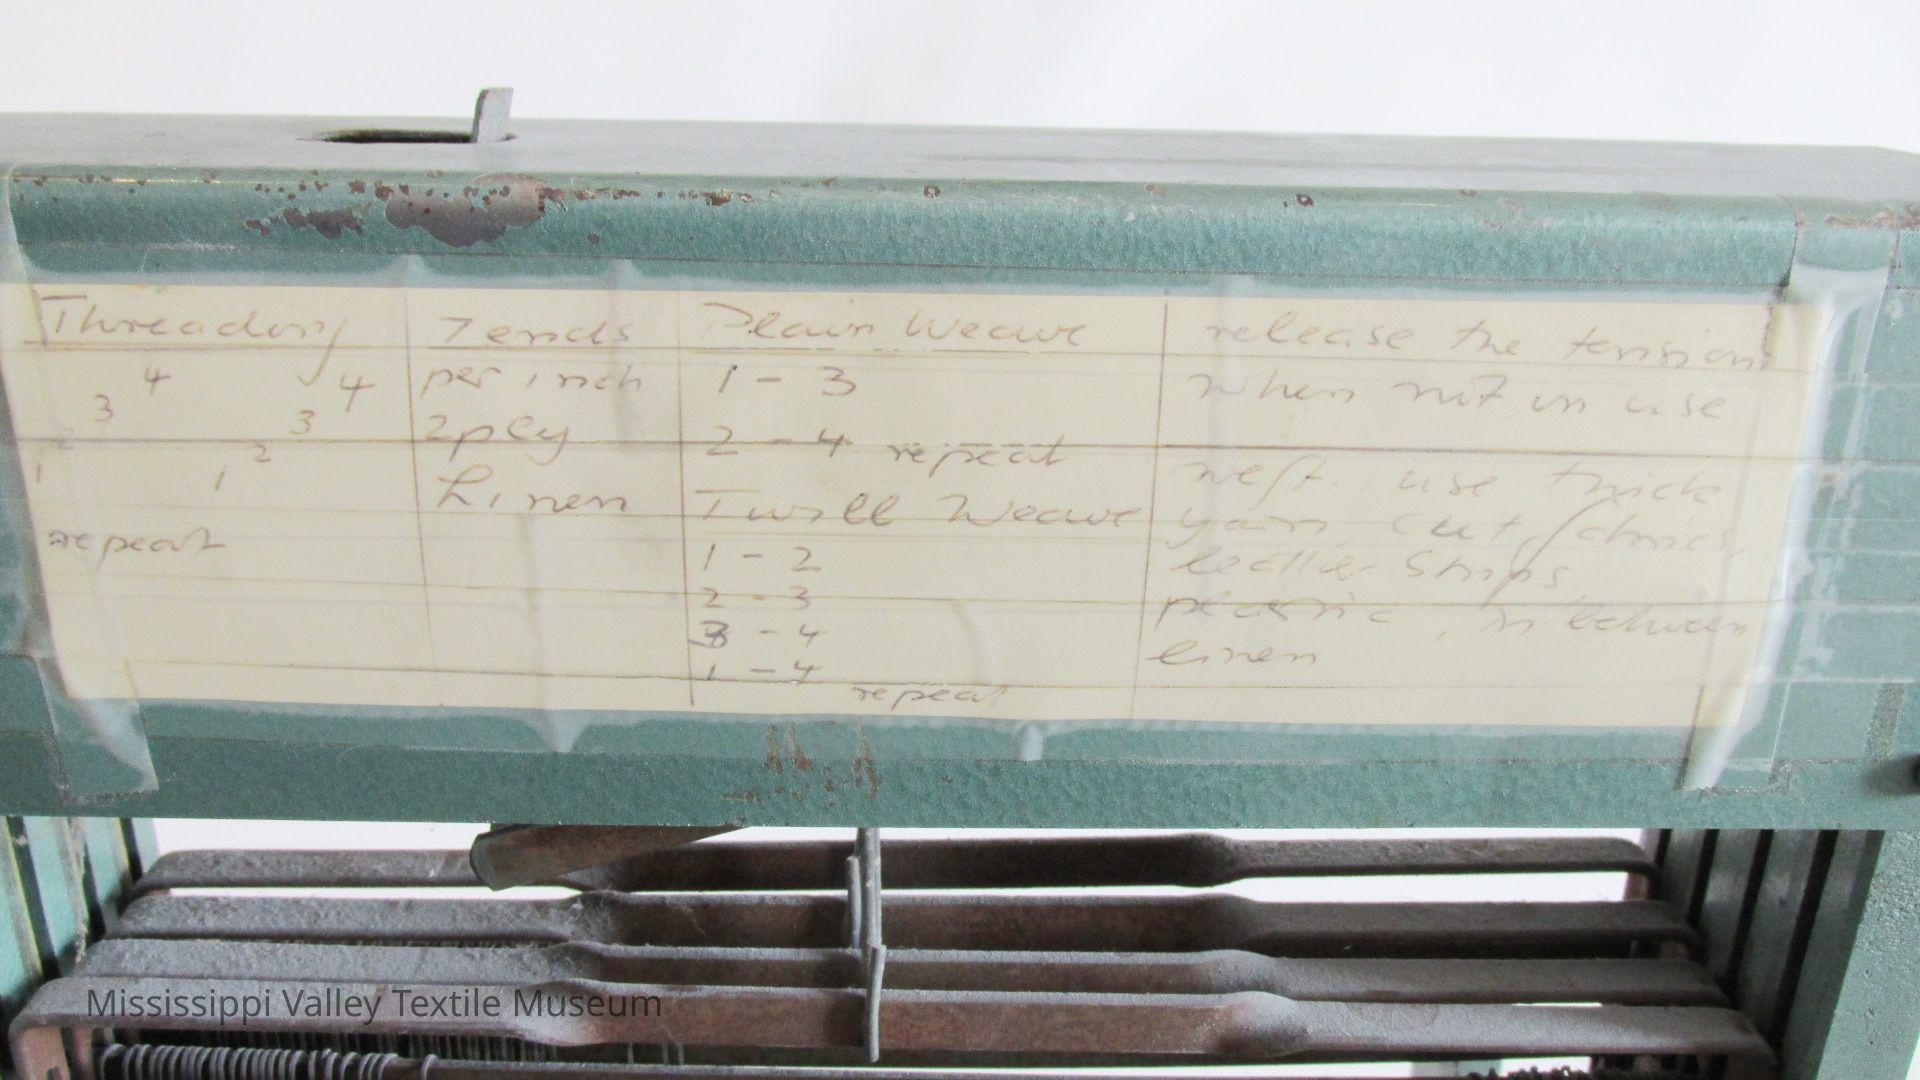 Threading
4 4
3 3
2 2
1 1
repeat
7 ends
per inch
2 ply
Linen
Plain Weave
1 - 3
2 - 4 repeat
Twill Weave
1 - 2
2 - 3
3 - 4
1 - 4
repeat
release the tension
when not in use
weft. use thick
yarn, cut fabrics,
leather strips
plastic, in between
linen
Mississippi Valley Textile Museum